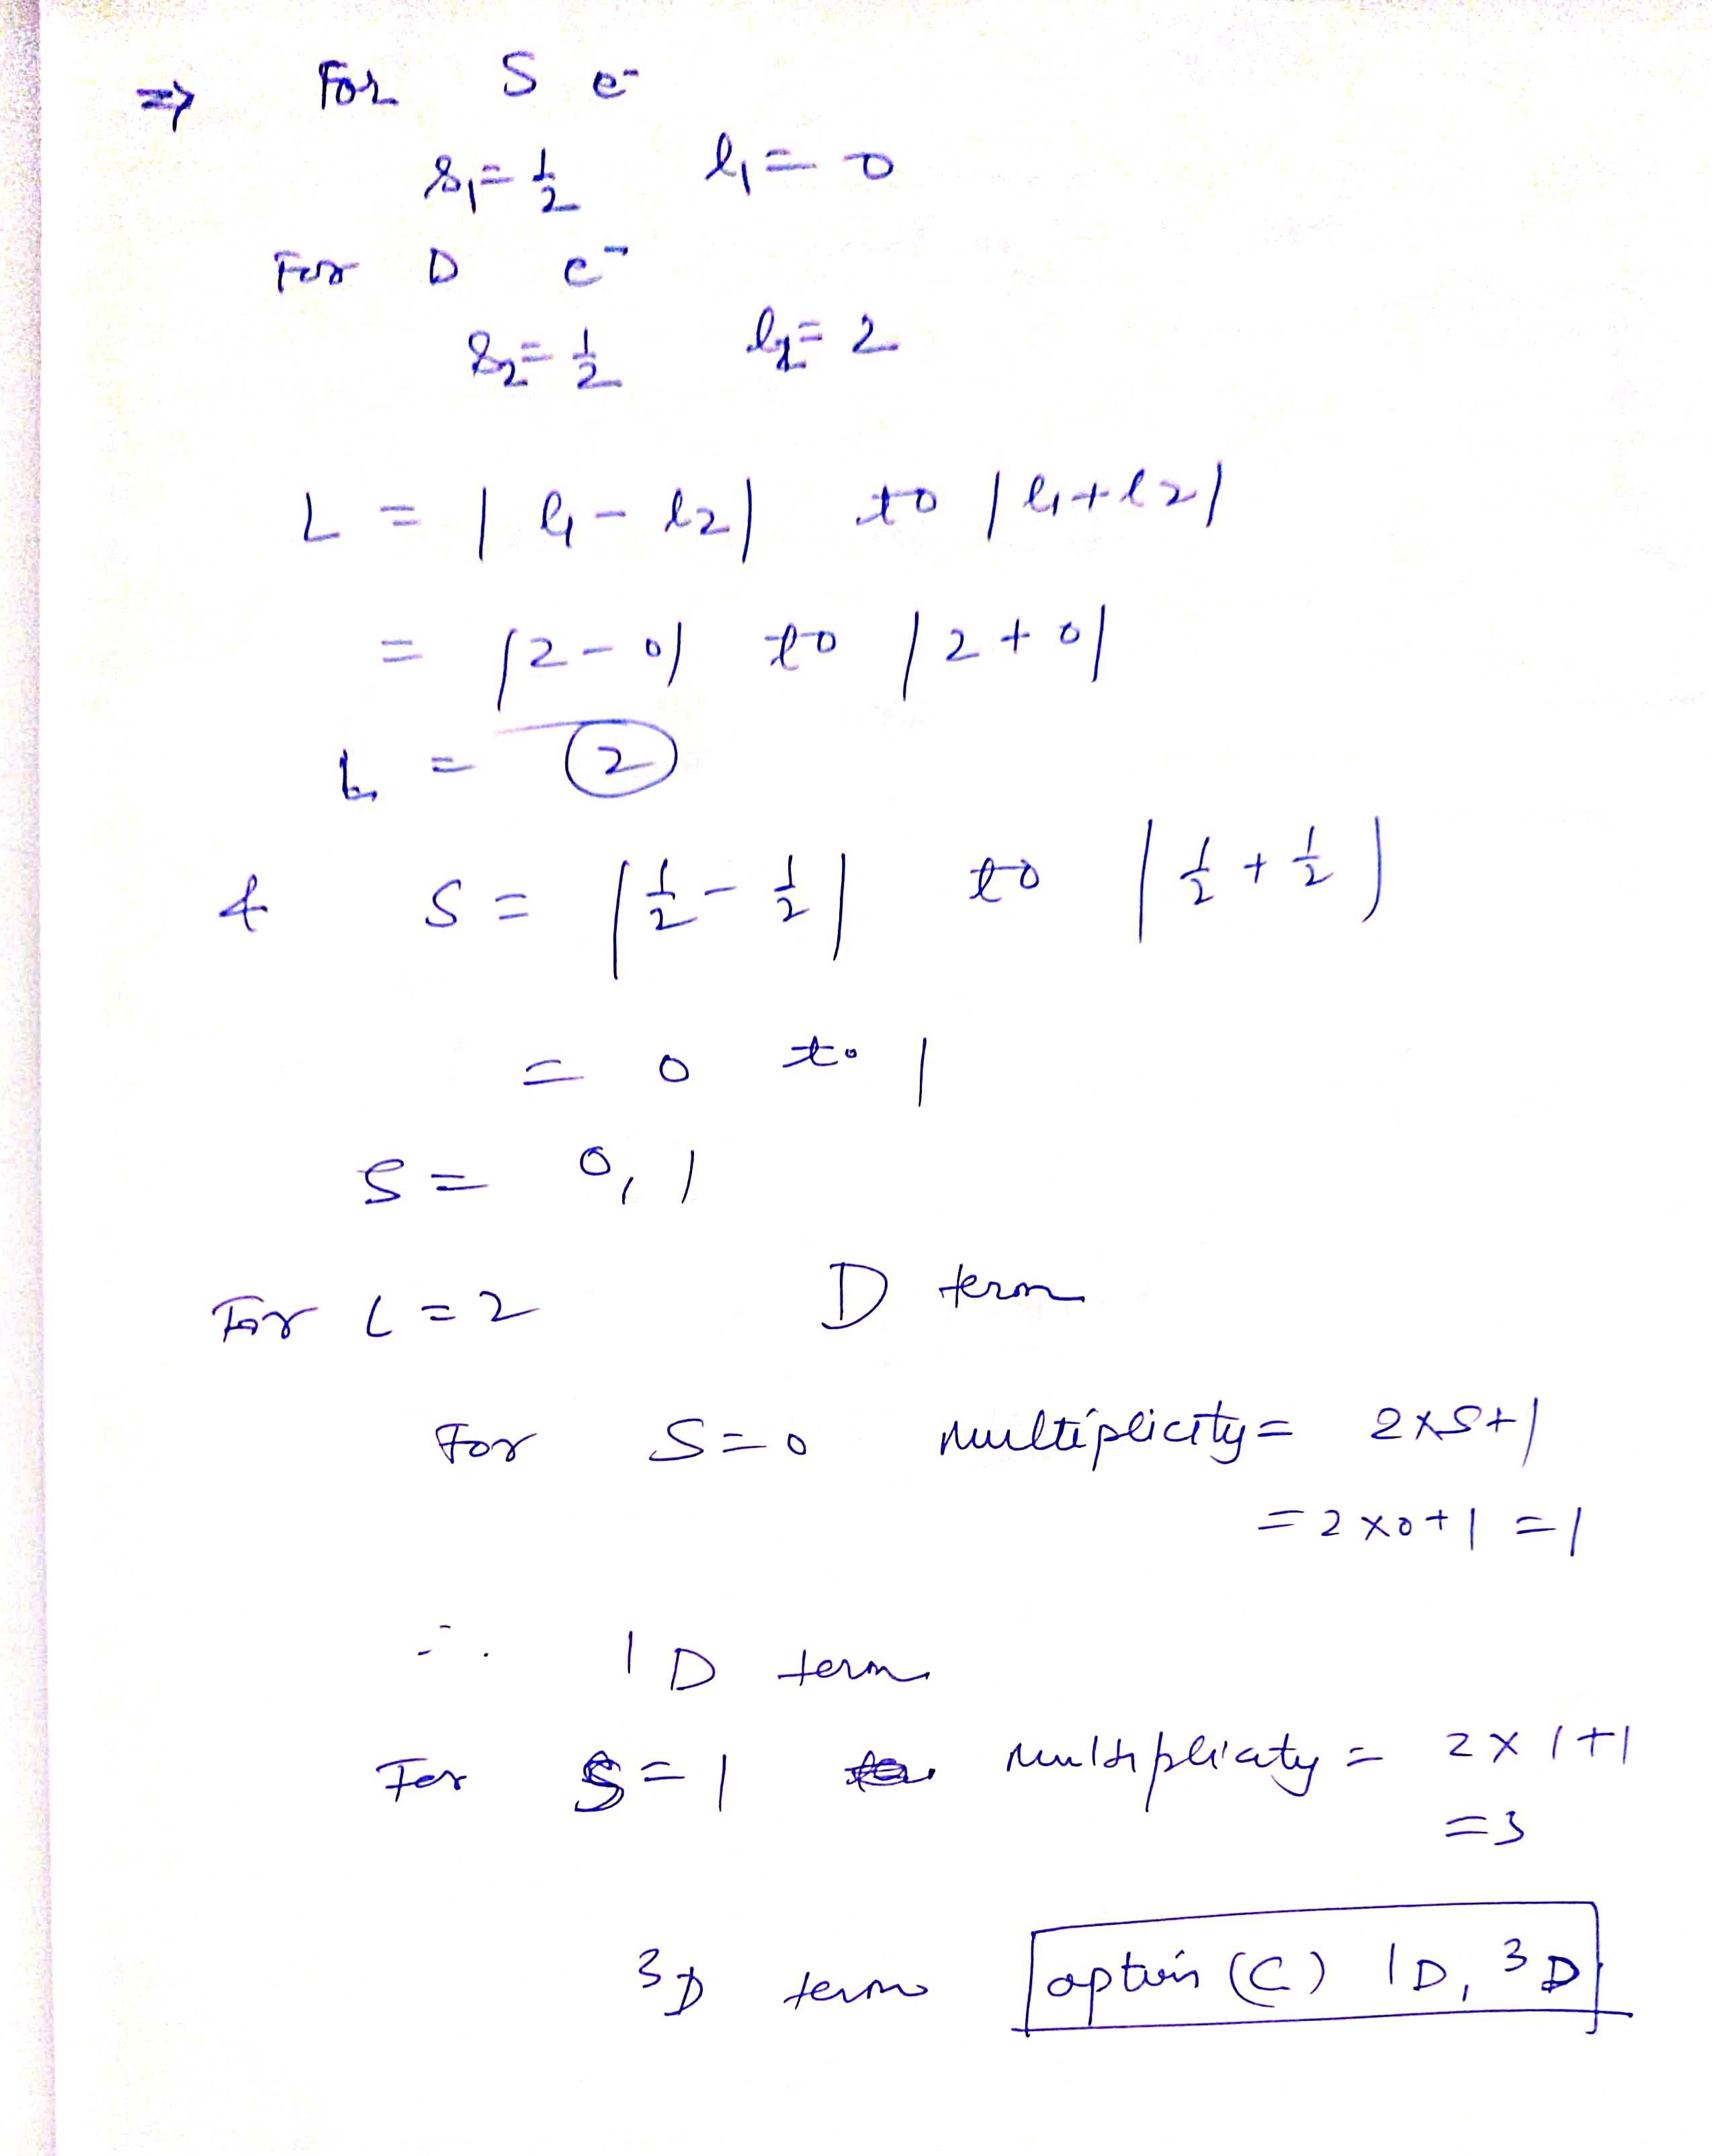 ⇒ For S e⁻
s₁ = 1/2 l₁ = 0
For D e⁻
s₂ = 1/2 l₂ = 2
L = |l₁ - l₂| to |l₁ + l₂|
= |2 - 0| to |2 + 0|
L = 2
& S = |1/2 - 1/2| to |1/2 + 1/2|
= 0 to 1
S = 0, 1
For L = 2 D term
For S = 0 Multiplicity = 2×S+1
= 2×0+1 = 1
∴ ¹D term
For S = 1 Multiplicity = 2×1+1
= 3
³D term option (C) ¹D, ³D